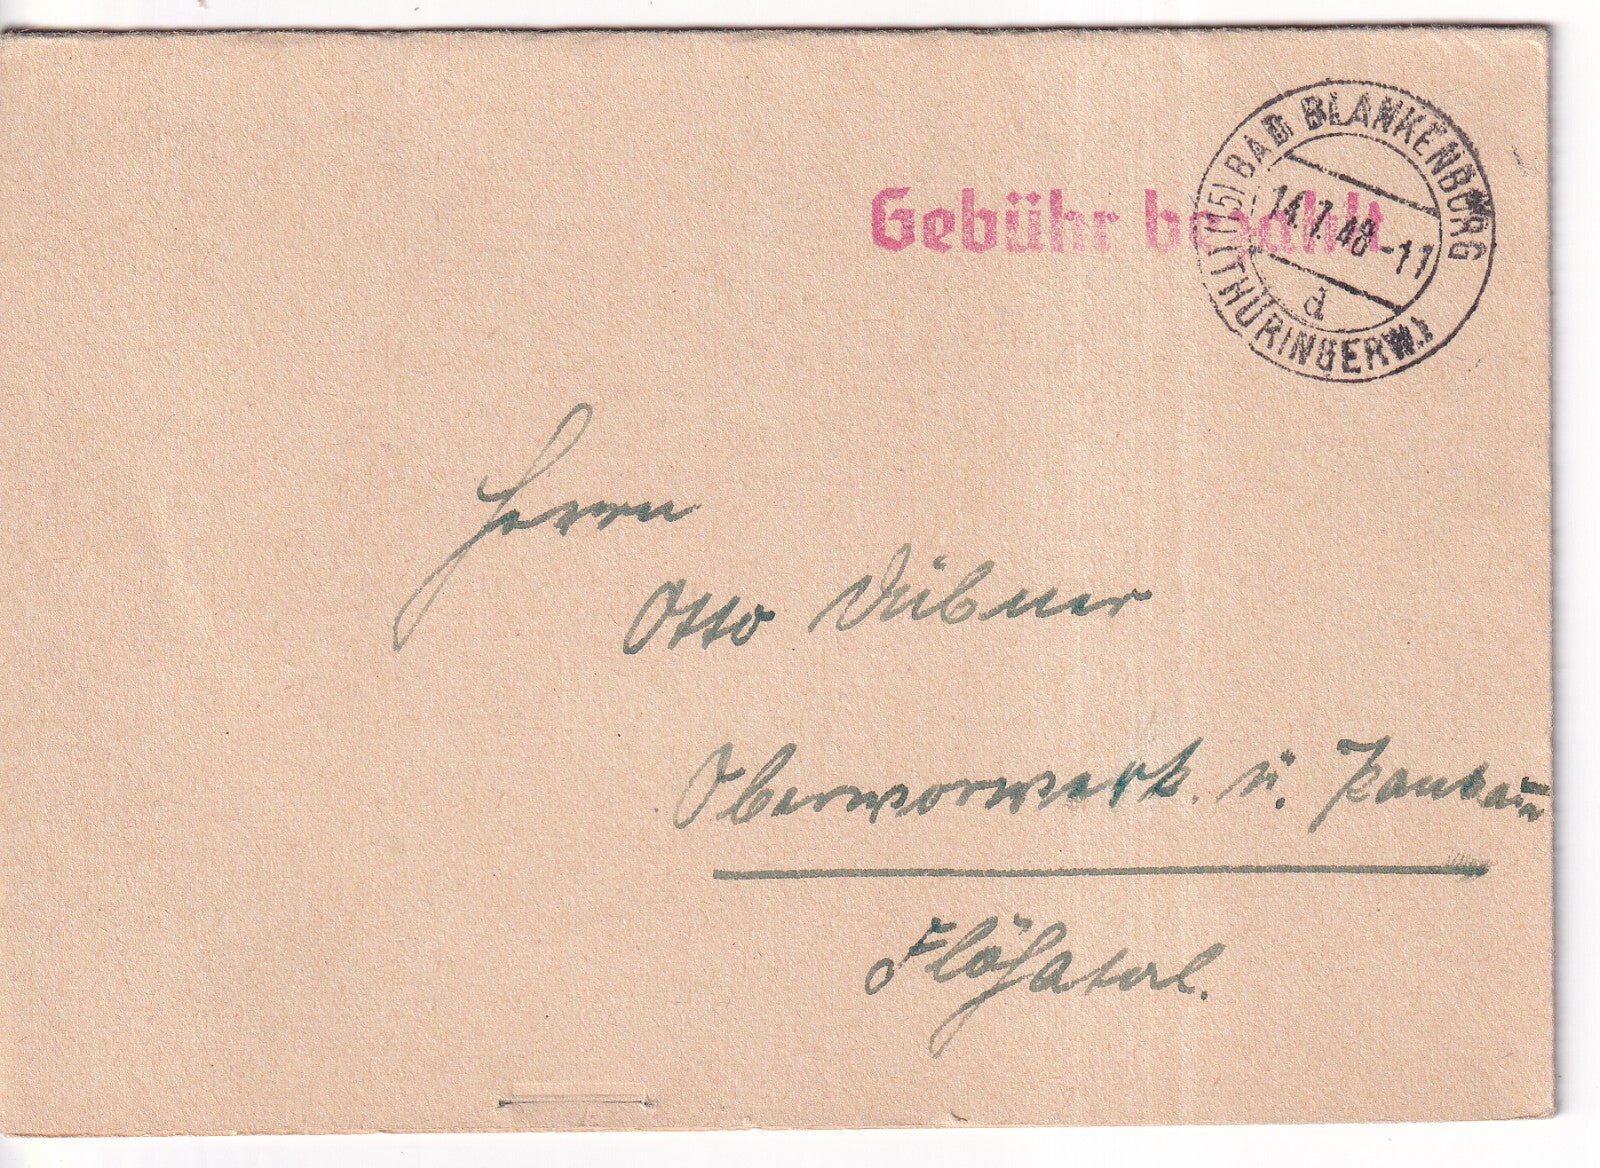 Gebühr bezahlt
(15) BAD BLANKENBURG
14.7.48-11
d
(THÜRINGERW.)
Herrn
Otto Dübner
Obervorwerk. ü.
Flöhatal.